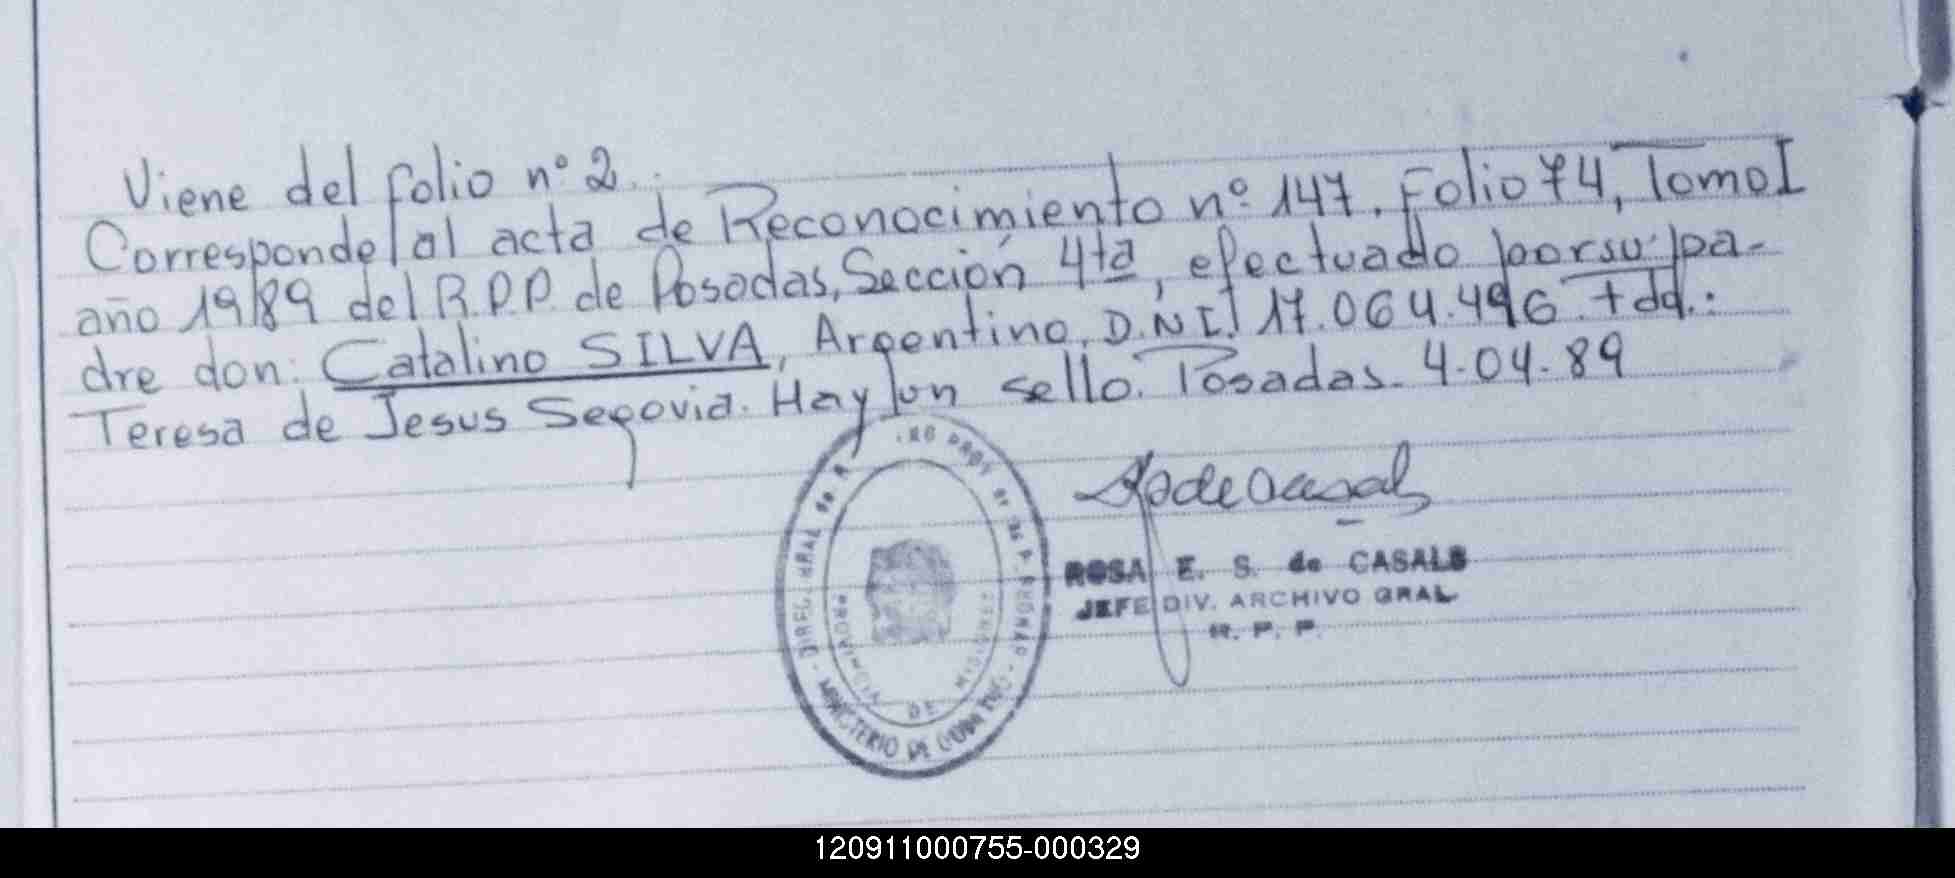 Viene del folio nº 2.
Corresponde al acta de Reconocimiento nº 147. Folio 74, Tomo I
año 1989 del R.P.P. de Posadas, Sección 4ta, efectuado por su pa-
dre don: Catalino SILVA, Argentino, D.N.I. 17.064.496. tdd.:
Teresa de Jesus Segovia. Hay un sello. Posadas. 4-04-89
ROSA E. S. de CASALS
JEFE DIV. ARCHIVO GRAL
R. P. P.
MINISTERIO DE
PROVINCIA DE MISIONES
120911000755-000329